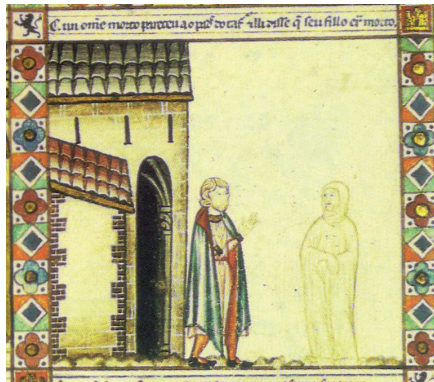 C. un ome morto pareceu ao pad̃ do taf̃ ⁊ lli disse q̃ seu fillo er̃ morto.